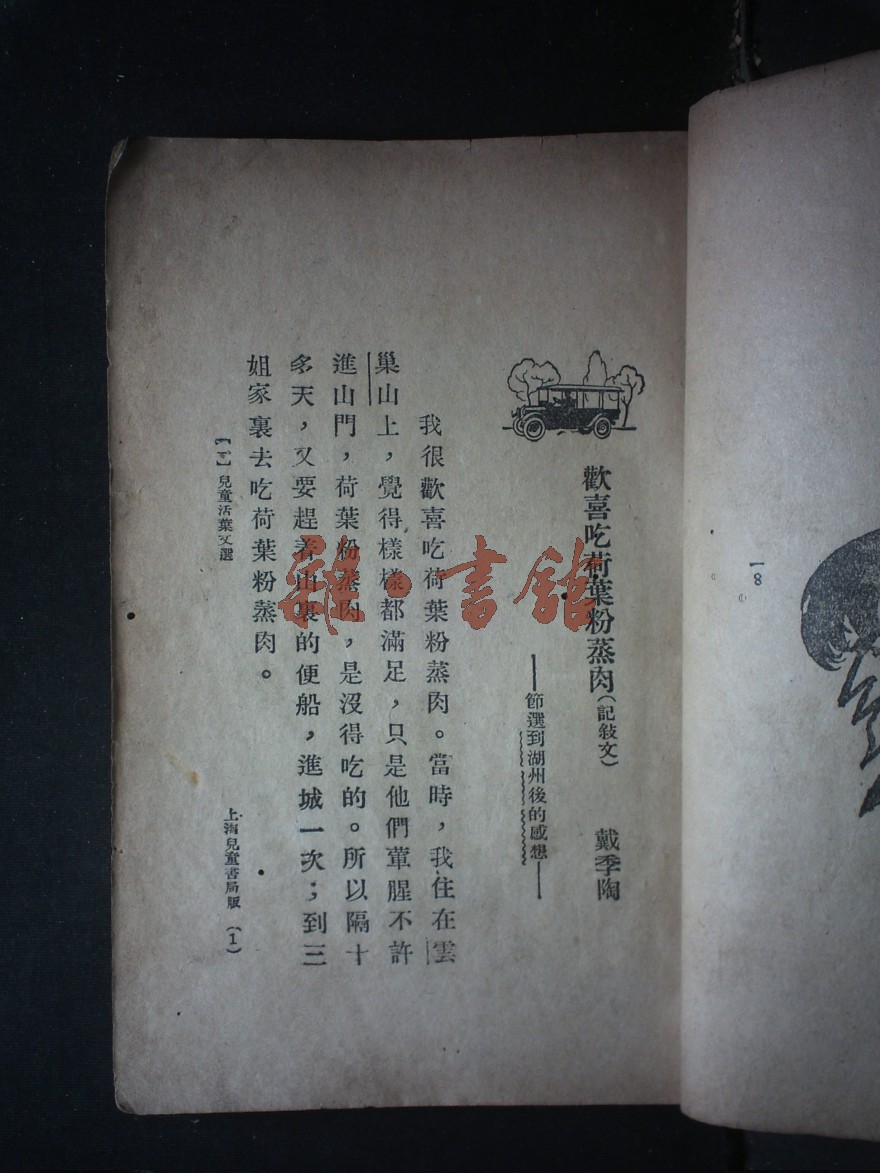 歡喜吃荷葉粉蒸肉(記敍文)
戴季陶
——節選到湖州後的感想——
我很歡喜吃荷葉粉蒸肉。當時，我住在雲
巢山上，覺得樣樣都滿足，只是他們葷腥不許
進山門，荷葉粉蒸肉，是沒得吃的。所以隔十
多天，又要趕着山裏的便船，進城一次；到三
姐家裏去吃荷葉粉蒸肉。
兒童活葉文選
上海兒童書局版 (1)
18
雜·書館